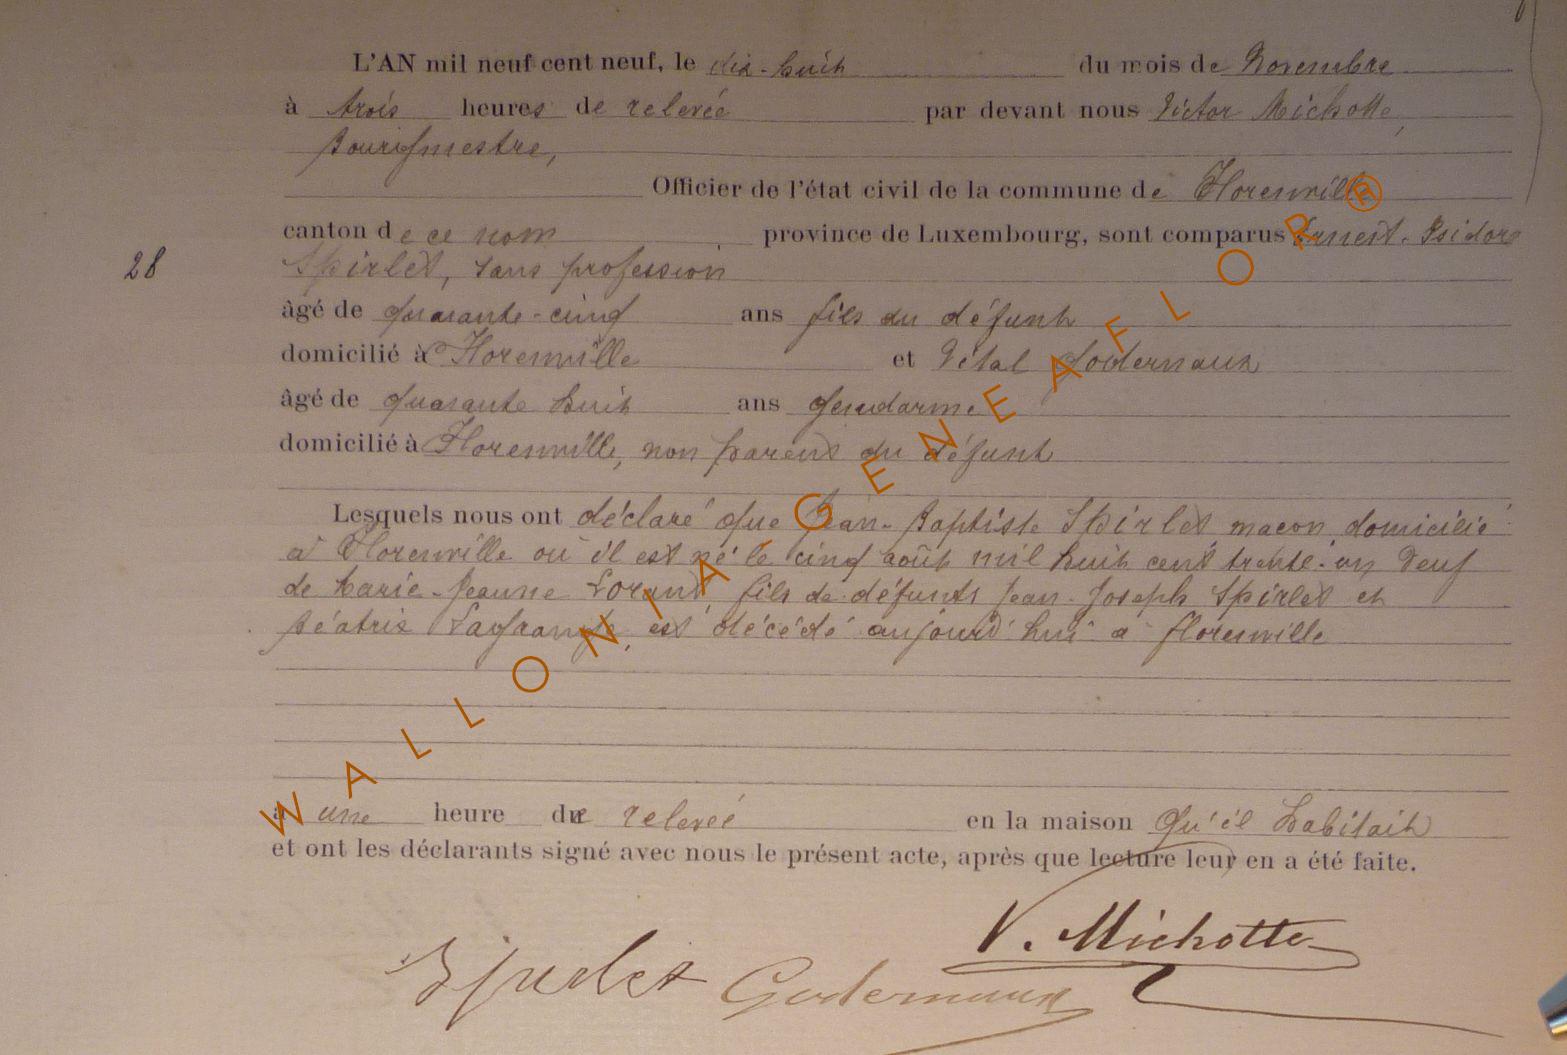 L'AN mil neuf cent neuf, le dix-huit du mois de Novembre
à trois heures de relevée par devant nous Victor Michotte,
Bourgmestre,
Officier de l'état civil de la commune de Florenville
canton de ce nom province de Luxembourg, sont comparus Ernest-Isidore
28 Spirlet, sans profession
âgé de quarante-cinq ans fils du défunt
domicilié à Florenville et Vital Godernaux
âgé de quarante huit ans Gendarme
domicilié à Florenville, non parent du défunt
Lesquels nous ont déclaré que Jean-Baptiste Spirlet maçon, domicilié
à Florenville où il est né le cinq août mil huit cent trente-un veuf
de Marie-Jeanne fils de défunts Jean-Joseph Spirlet et
Béatrix est décédé aujourd'hui à Florenville
à une heure de relevée en la maison qu'il habitait
et ont les déclarants signé avec nous le présent acte, après que lecture leur en a été faite.
V. Michotte
Spirlet Godernaux
WALLONIA-GENEAFLOR®